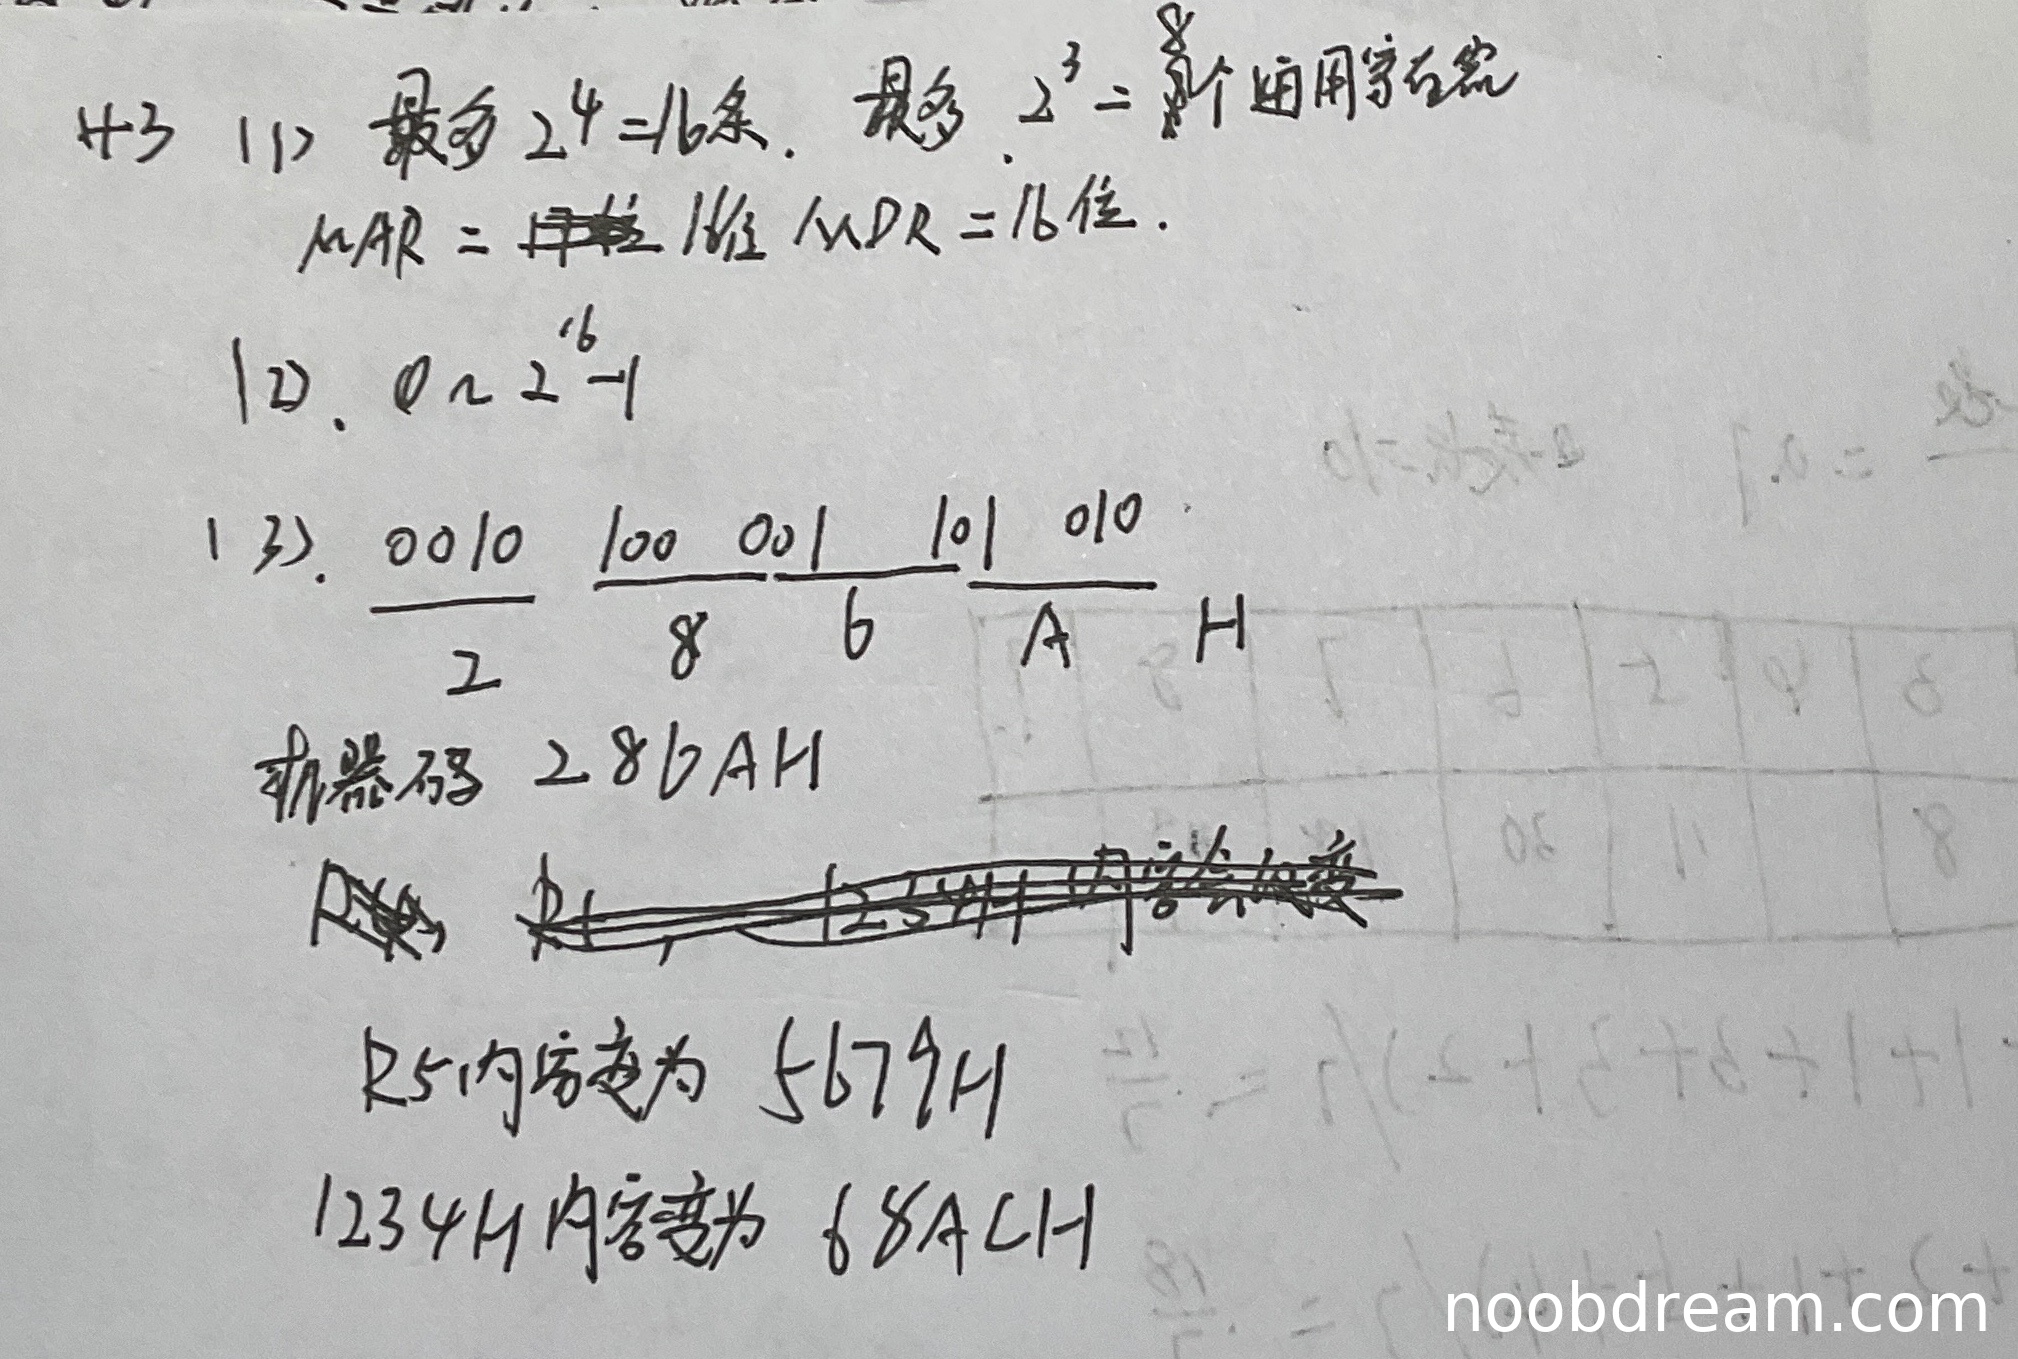 43 (1) 最多 2^4=16条. 最多. 2^3=8个通用寄存器
MAR = 16位 MDR = 16位.
(2). 0~2^16-1
(3). 0010 100 001 101 010
2 8 6 A H
机器码 286AH
R5内容变为 5679H
1234H内容变为 68ACH
noobdream.com